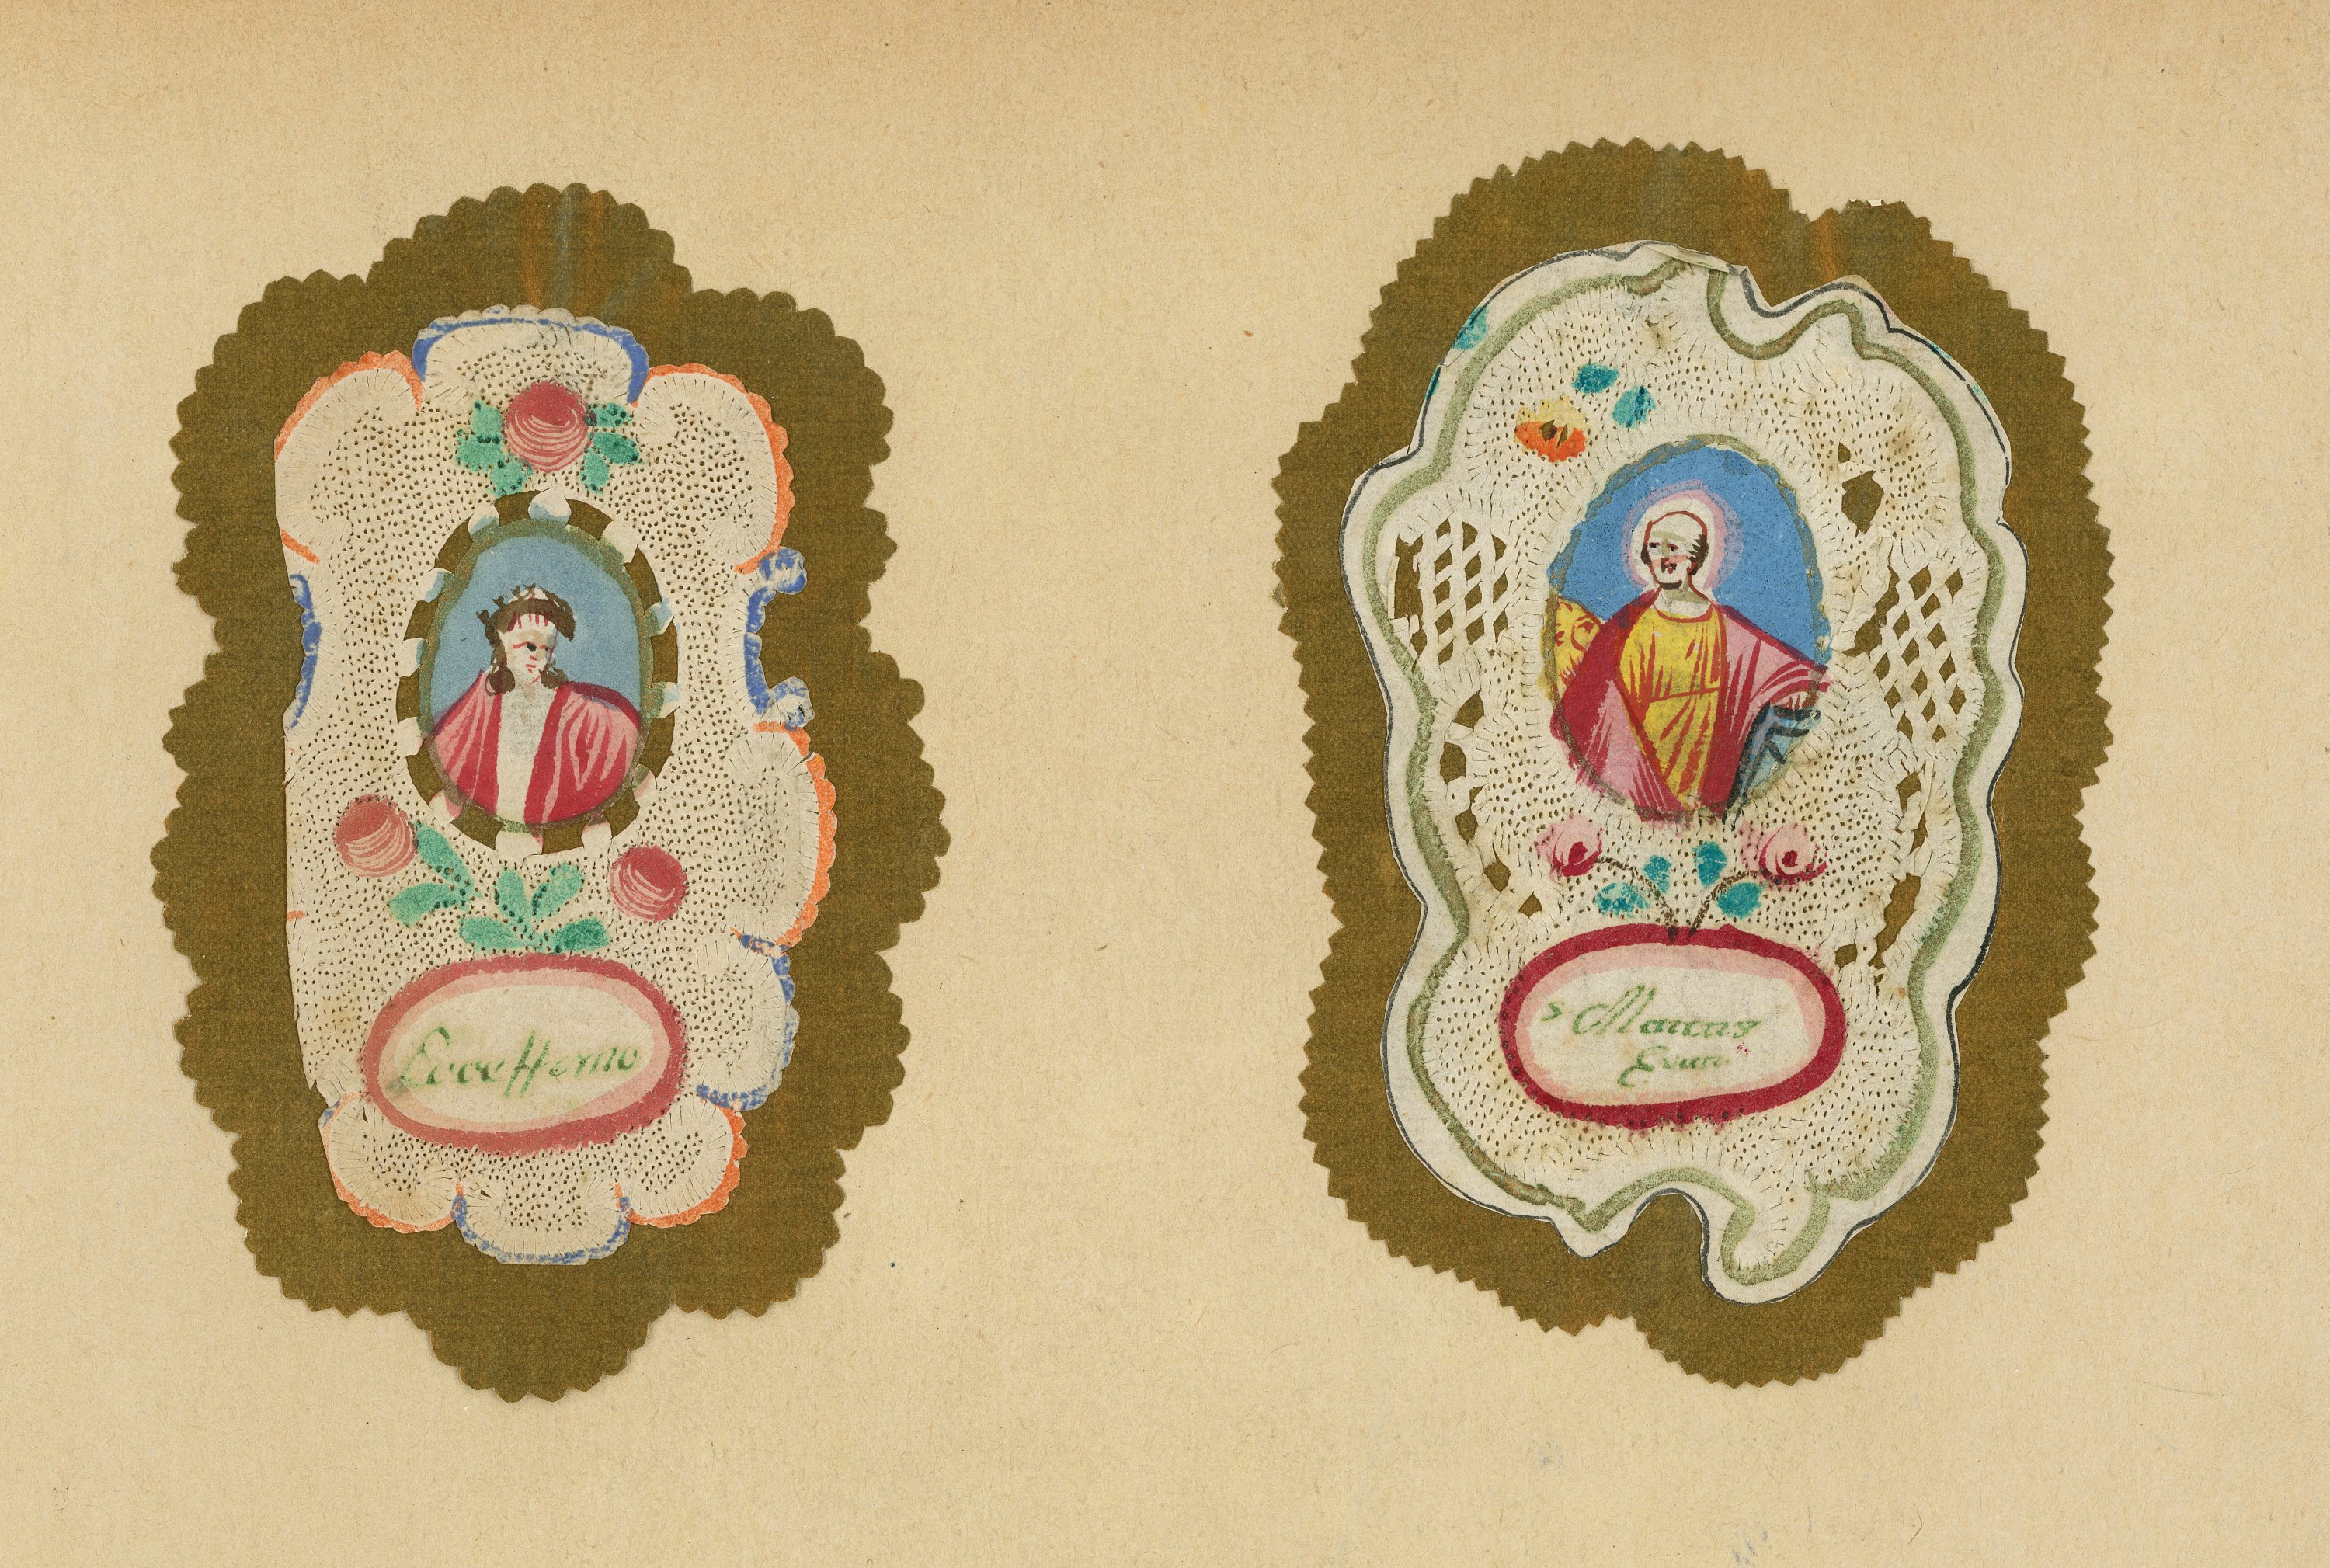 Ecce Homo
S Marcus
Evan